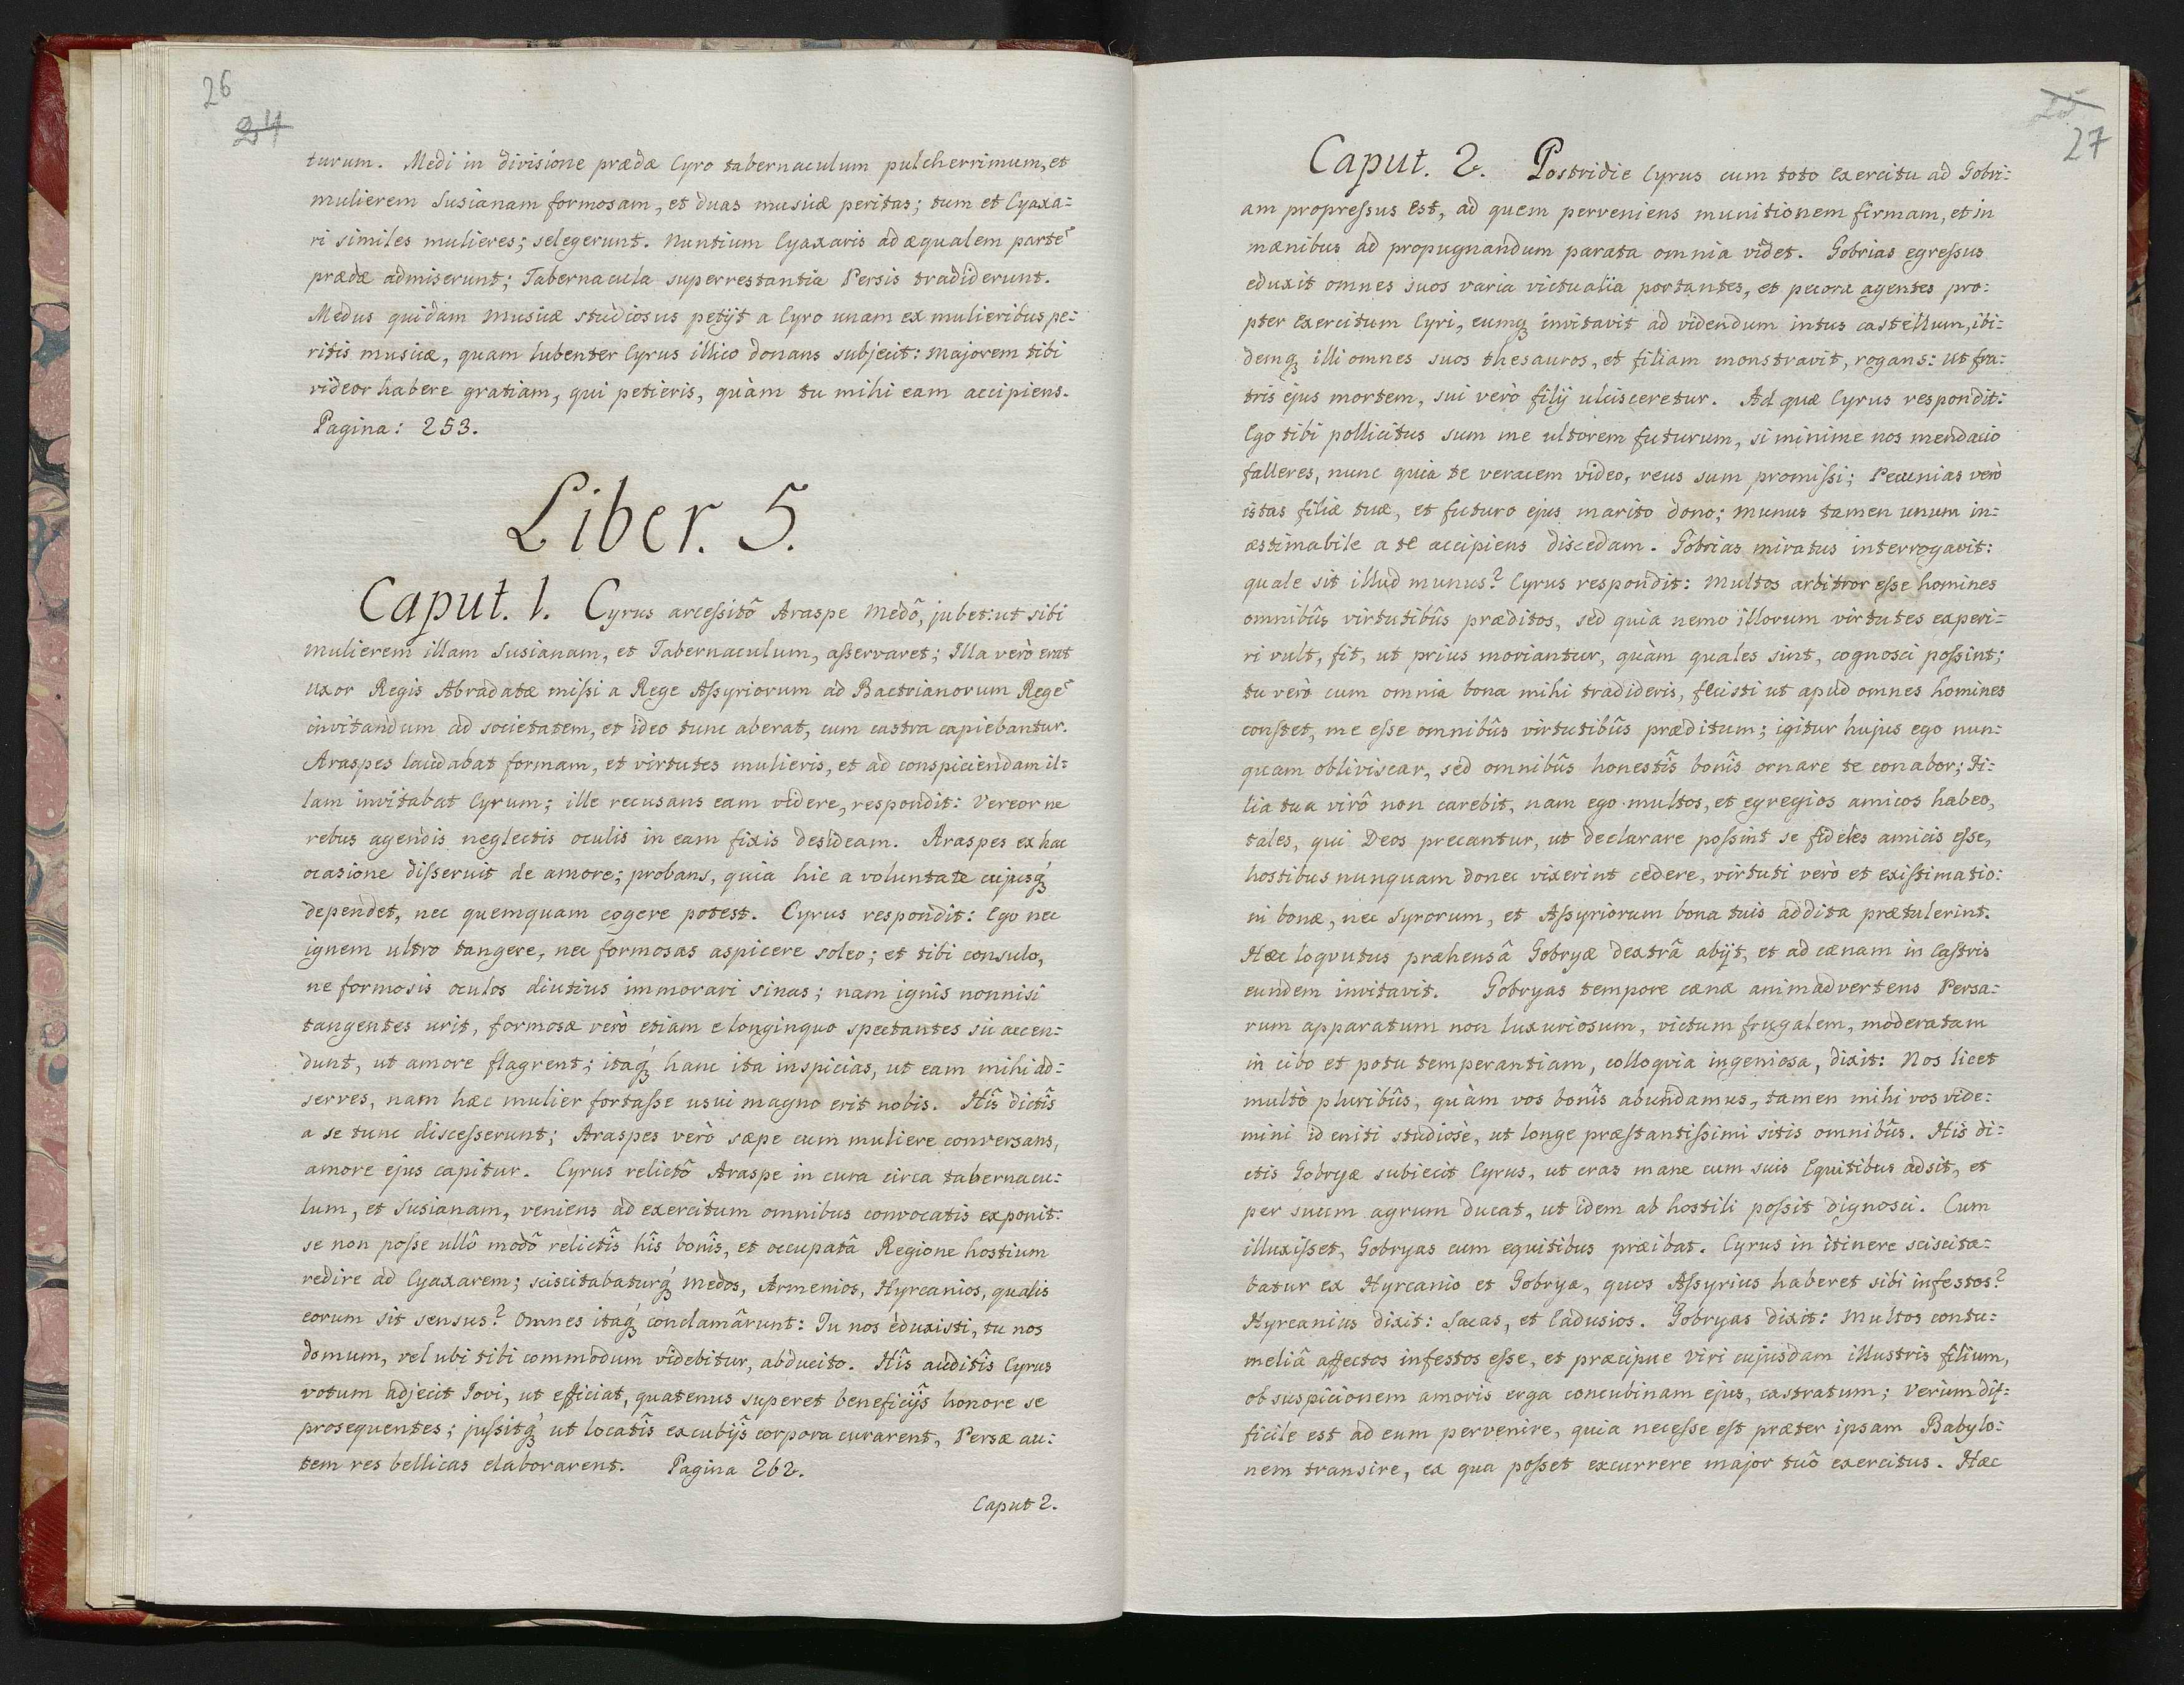 26
24
turum. Medi in divisione prædæ Cyro tabernaculum pulcherrimum, et
mulierem Susianam formosam, et duas musicæ peritas; tum et Cyaxa=
ri similes mulieres; selegerunt. Nuntium Cyaxaris ad æqualem partẽ
prædæ admiserunt; Tabernacula superrestantia Persis tradiderunt.
Medus quidam musicæ studiosus petijt a Cyro unam ex mulieribus pe=
ritis musicæ, quam lubenter Cyrus illico donans subjecit: majorem tibi
videor habere gratiam, qui petieris, quàm tu mihi eam accipiens.
Pagina: 253.
Liber. 5.
Caput. 1. Cyrus arceſsitô Araspe Medô, jubet: ut sibi
mulierem illam Susianam, et Tabernaculum, aſservaret; Illa verò erat
uxor Regis Abradatæ miſsi a Rege Aſsyriorum ad Bactrianorum Regẽ
invitandum ad societatem, et ideo tunc aberat, cum castra capiebantur.
Araspes laudabat formam, et virtutes mulieris, et ad conspiciendam il=
lam invitabat Cyrum; ille recusans eam videre, respondit: Vereor ne
rebus agendis neglectis oculis in eam fixis desideam. Araspes ex hac
ocasione diſseruit de amore; probans, quia hic a voluntate cujusq́
dependet, nec quemquam cogere potest. Cyrus respondit: Ego nec
ignem ultro tangere, nec formosas aspicere soleo; et tibi consulo,
ne formosis oculos diutius immorari sinas; nam ignis nonnisi
tangentes urit, formosæ verò etiam e longinquo spectantes sic accen=
dunt, ut amore flagrent; itaq́ hanc ita inspicias, ut eam mihi ad=
serves, nam hæc mulier fortaſse usui magno erit nobis. Hîs dictîs
a se tunc disceſserunt; Araspes verò sæpe cum muliere conversans,
amore ejus capitur. Cyrus relictô Araspe in cura circa tabernacu=
lum, et Susianam, veniens ad exercitum omnibus convocatis exponit:
se non poſse ullô modô relictîs hîs bonîs, et occupatâ Regione hostium
redire ad Cyaxarem; sciscitabaturq́ Medos, Armenios, Hyrcanios, qualis
eorum sit sensus? Omnes itaq́ conclamârunt: Tu nos eduxisti, tu nos
domum, vel ubi tibi commodum videbitur, abducito. Hîs auditîs Cyrus
votum adjecit Jovi, ut efficiat, quatenus superet beneficijs honore se
prosequentes; juſsitq́ ut locatîs excubijs corpora curarent, Persæ au=
tem res bellicas elaborarent. Pagina 262.
Caput 2.
25
27
Caput. 2. Postridie Cyrus cum toto Exercitu ad Gobri=
am propreſsus est, ad quem perveniens munitionem firmam, et in
mænibus ad propugnandum parata omnia videt. Gobrias egreſsus
eduxit omnes suos varia victualia portantes, et pecora agentes pro=
pter Exercitum Cyri, eumq invitavit ad videndum intus castellum, ibi=
demq illi omnes suos thesauros, et filiam monstravit, rogans: ut fra=
tris ejus mortem, sui verò filij ulcisceretur. Ad quæ Cyrus respondit:
Ego tibi pollicitus sum me ultorem futurum, si minime nos mendacio
falleres, nunc quia te veracem video, reus sum promiſsi; Pecunias verò
istas filiæ tuæ, et futuro ejus marito dono; munus tamen unum in=
æstimabile a te accipiens discedam. Gobrias miratus interrogavit:
quale sit illud munus? Cyrus respondit: Multos arbitror eſse homines
omnibûs virtutibûs præditos, sed quia nemo illorum virtutes experi=
ri vult, fit, ut prius moriantur, quàm quales sint, cognosci poſsint;
tu verò cum omnia bona mihi tradideris, fecisti ut apud omnes homines
conſtet, me eſse omnibûs virtutibûs præditum; igitur hujus ego nun=
quam obliviscar, sed omnibûs honestîs bonîs ornare te conabor; Fi=
lia tua virô non carebit, nam ego multos, et egregios amicos habeo,
tales, qui Deos precantur, ut declarare poſsint se fideles amicis eſse,
hostibus nunquam donec vixerint cedere, virtuti verò et exiſtimatio=
ni bonæ, nec Syrorum, et Aſsyriorum bona tuis addita prætulerint.
Hæc loqvutus præhensâ Gobryæ dextrâ abijt, et ad cænam in Caſtris
eundem invitavit. Gobryas tempore cænæ animadvertens Persa=
rum apparatum non luxuriosum, victum frugalem, moderatam
in cibo et potu temperantiam, colloqvia ingeniosa, dixit: Nos licet
multò pluribûs, quàm vos bonîs abundamus, tamen mihi vos vide=
mini id eniti studiosè, ut longe præſtantiſsimi sitis omnibûs. His di=
ctis Gobryæ subiecit Cyrus, ut cras mane cum suis Equitibus adsit, et
per suum agrum ducat, ut idem ab hostili poſsit dignosci. Cum
illuxiſset, Gobryas cum equitibus præibat. Cyrus in itinere sciscita=
batur ex Hyrcanio et Gobrya, quos Aſsyrius haberet sibi infestos?
Hyrcanius dixit: Sacas, et Cadusios. Gobryas dixit: Multos contu=
meliâ affectos infestos eſse, et præcipue viri cujusdam illustris filium,
ob suspicionem amoris erga concubinam ejus, castratum; Verùm dif=
ficile est ad eum pervenire, quia neceſse eſt præter ipsam Babylo=
nem transire, ex qua poſset excurrere major tuô exercitus. Hæc